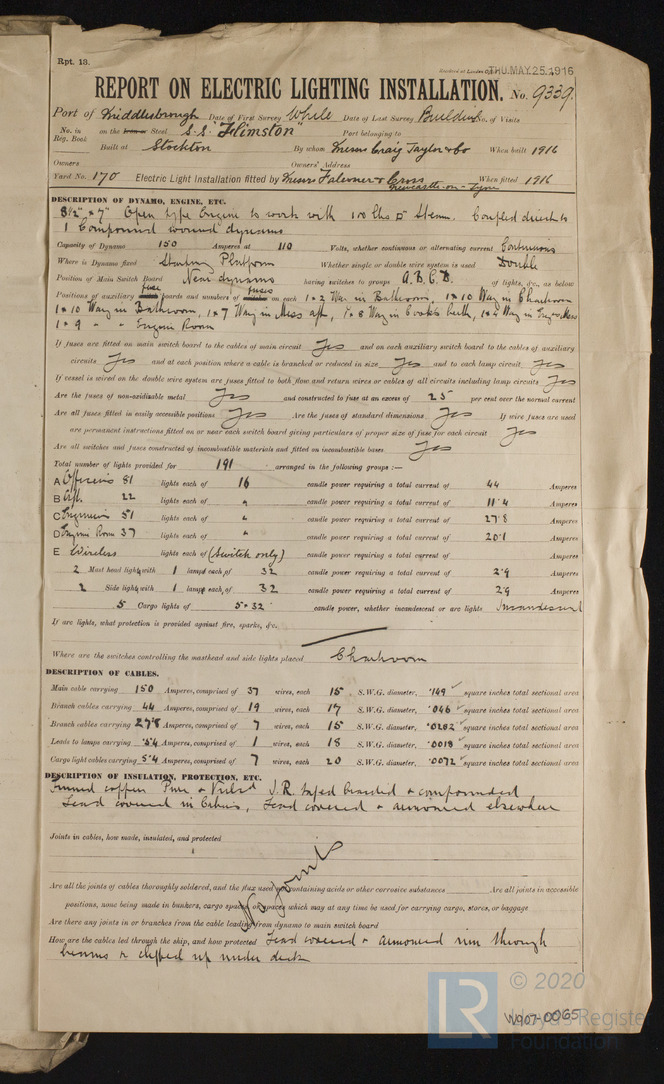 Rpt. 13.
Received at London Office THU. MAY. 25. 1916
REPORT ON ELECTRIC LIGHTING INSTALLATION. No. 9339.
Port of Middlesbrough Date of First Survey While Date of Last Survey Building No. of Visits
No. in Reg. Book on the Iron or Steel S.S. "Flimston" Port belonging to
Built at Stockton By whom Messrs Craig Taylor & Co When built 1916
Owners Owners' Address
Yard No. 170 Electric Light Installation fitted by Messrs Falconer & Cross Newcastle-on-Tyne When fitted 1916
DESCRIPTION OF DYNAMO, ENGINE, ETC.
8½" × 7" Open type Engine to work with 100 lbs □" Steam. Coupled direct to
1 Compound wound dynamo
Capacity of Dynamo 150 Amperes at 110 Volts, whether continuous or alternating current Continuous
Where is Dynamo fixed Starting Platform Whether single or double wire system is used Double
Position of Main Switch Board Near dynamo having switches to groups A. B. C. D. of lights, &c., as below
Positions of auxiliary fuse boards and numbers of fuses on each 1 × 2 Way in Bathroom, 1 × 10 Way in Chartroom
1 × 10 Way in Bathroom, 1 × 7 Way in Mess aft, 1 × 8 Way in Cooks berth, 1 × 4 Way in Engrs Mess
1 × 9 " " Engine Room
If fuses are fitted on main switch board to the cables of main circuit Yes and on each auxiliary switch board to the cables of auxiliary
circuits Yes and at each position where a cable is branched or reduced in size Yes and to each lamp circuit Yes
If vessel is wired on the double wire system are fuses fitted to both flow and return wires or cables of all circuits including lamp circuits Yes
Are the fuses of non-oxidizable metal Yes and constructed to fuse at an excess of 25 per cent over the normal current
Are all fuses fitted in easily accessible positions Yes Are the fuses of standard dimensions Yes If wire fuses are used
are permanent instructions fitted on or near each switch board giving particulars of proper size of fuse for each circuit Yes
Are all switches and fuses constructed of incombustible materials and fitted on incombustible bases Yes
Total number of lights provided for 191 arranged in the following groups :—
A Officers 81 lights each of 16 candle power requiring a total current of 44 Amperes
B Aft 22 lights each of " candle power requiring a total current of 11.4 Amperes
C Engineers 51 lights each of " candle power requiring a total current of 27.8 Amperes
D Engine Room 37 lights each of " candle power requiring a total current of 20.1 Amperes
E Wireless lights each of (Switch only) candle power requiring a total current of Amperes
2 Mast head light with 1 lamp each of 32 candle power requiring a total current of 2.9 Amperes
2 Side light with 1 lamp each of 32 candle power requiring a total current of 2.9 Amperes
5 Cargo lights of 5 × 32 candle power, whether incandescent or arc lights Incandescent
If arc lights, what protection is provided against fire, sparks, &c.
Where are the switches controlling the masthead and side lights placed Chartroom
DESCRIPTION OF CABLES.
Main cable carrying 150 Amperes, comprised of 37 wires, each 15 S.W.G. diameter, .149 square inches total sectional area
Branch cables carrying 44 Amperes, comprised of 19 wires, each 17 S.W.G. diameter, .046 square inches total sectional area
Branch cables carrying 27.8 Amperes, comprised of 7 wires, each 15 S.W.G. diameter, .0282 square inches total sectional area
Leads to lamps carrying .54 Amperes, comprised of 1 wires, each 18 S.W.G. diameter, .0018 square inches total sectional area
Cargo light cables carrying 5.4 Amperes, comprised of 7 wires, each 20 S.W.G. diameter, .0072 square inches total sectional area
DESCRIPTION OF INSULATION, PROTECTION, ETC.
Tinned copper Pure & Vulcd I.R. taped braided & compounded
Lead covered in Cabins, Lead covered & armoured elsewhere
Joints in cables, how made, insulated, and protected
No joints
Are all the joints of cables thoroughly soldered, and the flux used not containing acids or other corrosive substances Are all joints in accessible
positions, none being made in bunkers, cargo spaces, or spaces which may at any time be used for carrying cargo, stores, or baggage
Are there any joints in or branches from the cable leading from dynamo to main switch board
How are the cables led through the ship, and how protected Lead covered & armoured run through
beams & clipped up under deck
© 2020
LR Lloyd's Register
Foundation
W907-0065